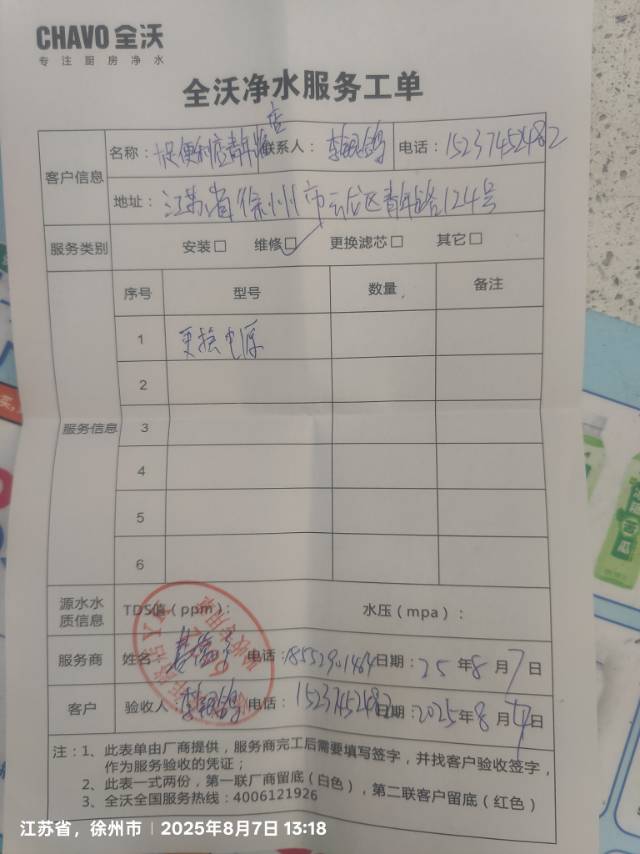 CHAVO 全沃
专注厨房净水
全沃净水服务工单
客户信息 名称：便利店青年路店 联系人：李 鸽 电话：15237452482
地址：江苏省徐州市云龙区青年路124号
服务类别 安装□ 维修□✓ 更换滤芯□ 其它□
服务信息 序号 型号 数量 备注
1 更换电源
2
3
4
5
6
源水水质信息 TDS值（ppm）： 水压（mpa）：
服务商 姓名： 电话： 日期：25年8月7日
客户 验收人：李 鸽 电话：15237452482 日期：2025年8月7日
注：1、此表单由厂商提供，服务商完工后需要填写签字，并找客户验收签字，
作为服务验收的凭证；
2、此表一式两份，第一联厂商留底（白色），第二联客户留底（红色）
3、全沃全国服务热线：4006121926
江苏省，徐州市 | 2025年8月7日 13:18